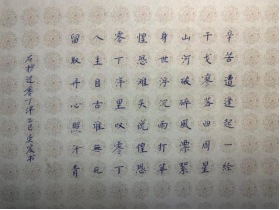 辛苦遭逢起一经
干戈寥落四周星
山河破碎風漂絮
身世浮沉雨打萍
惶恐滩头说惶恐
零丁洋里叹零丁
人生自古谁無死
留取丹心照汗青
右抄过零丁洋乙巳书